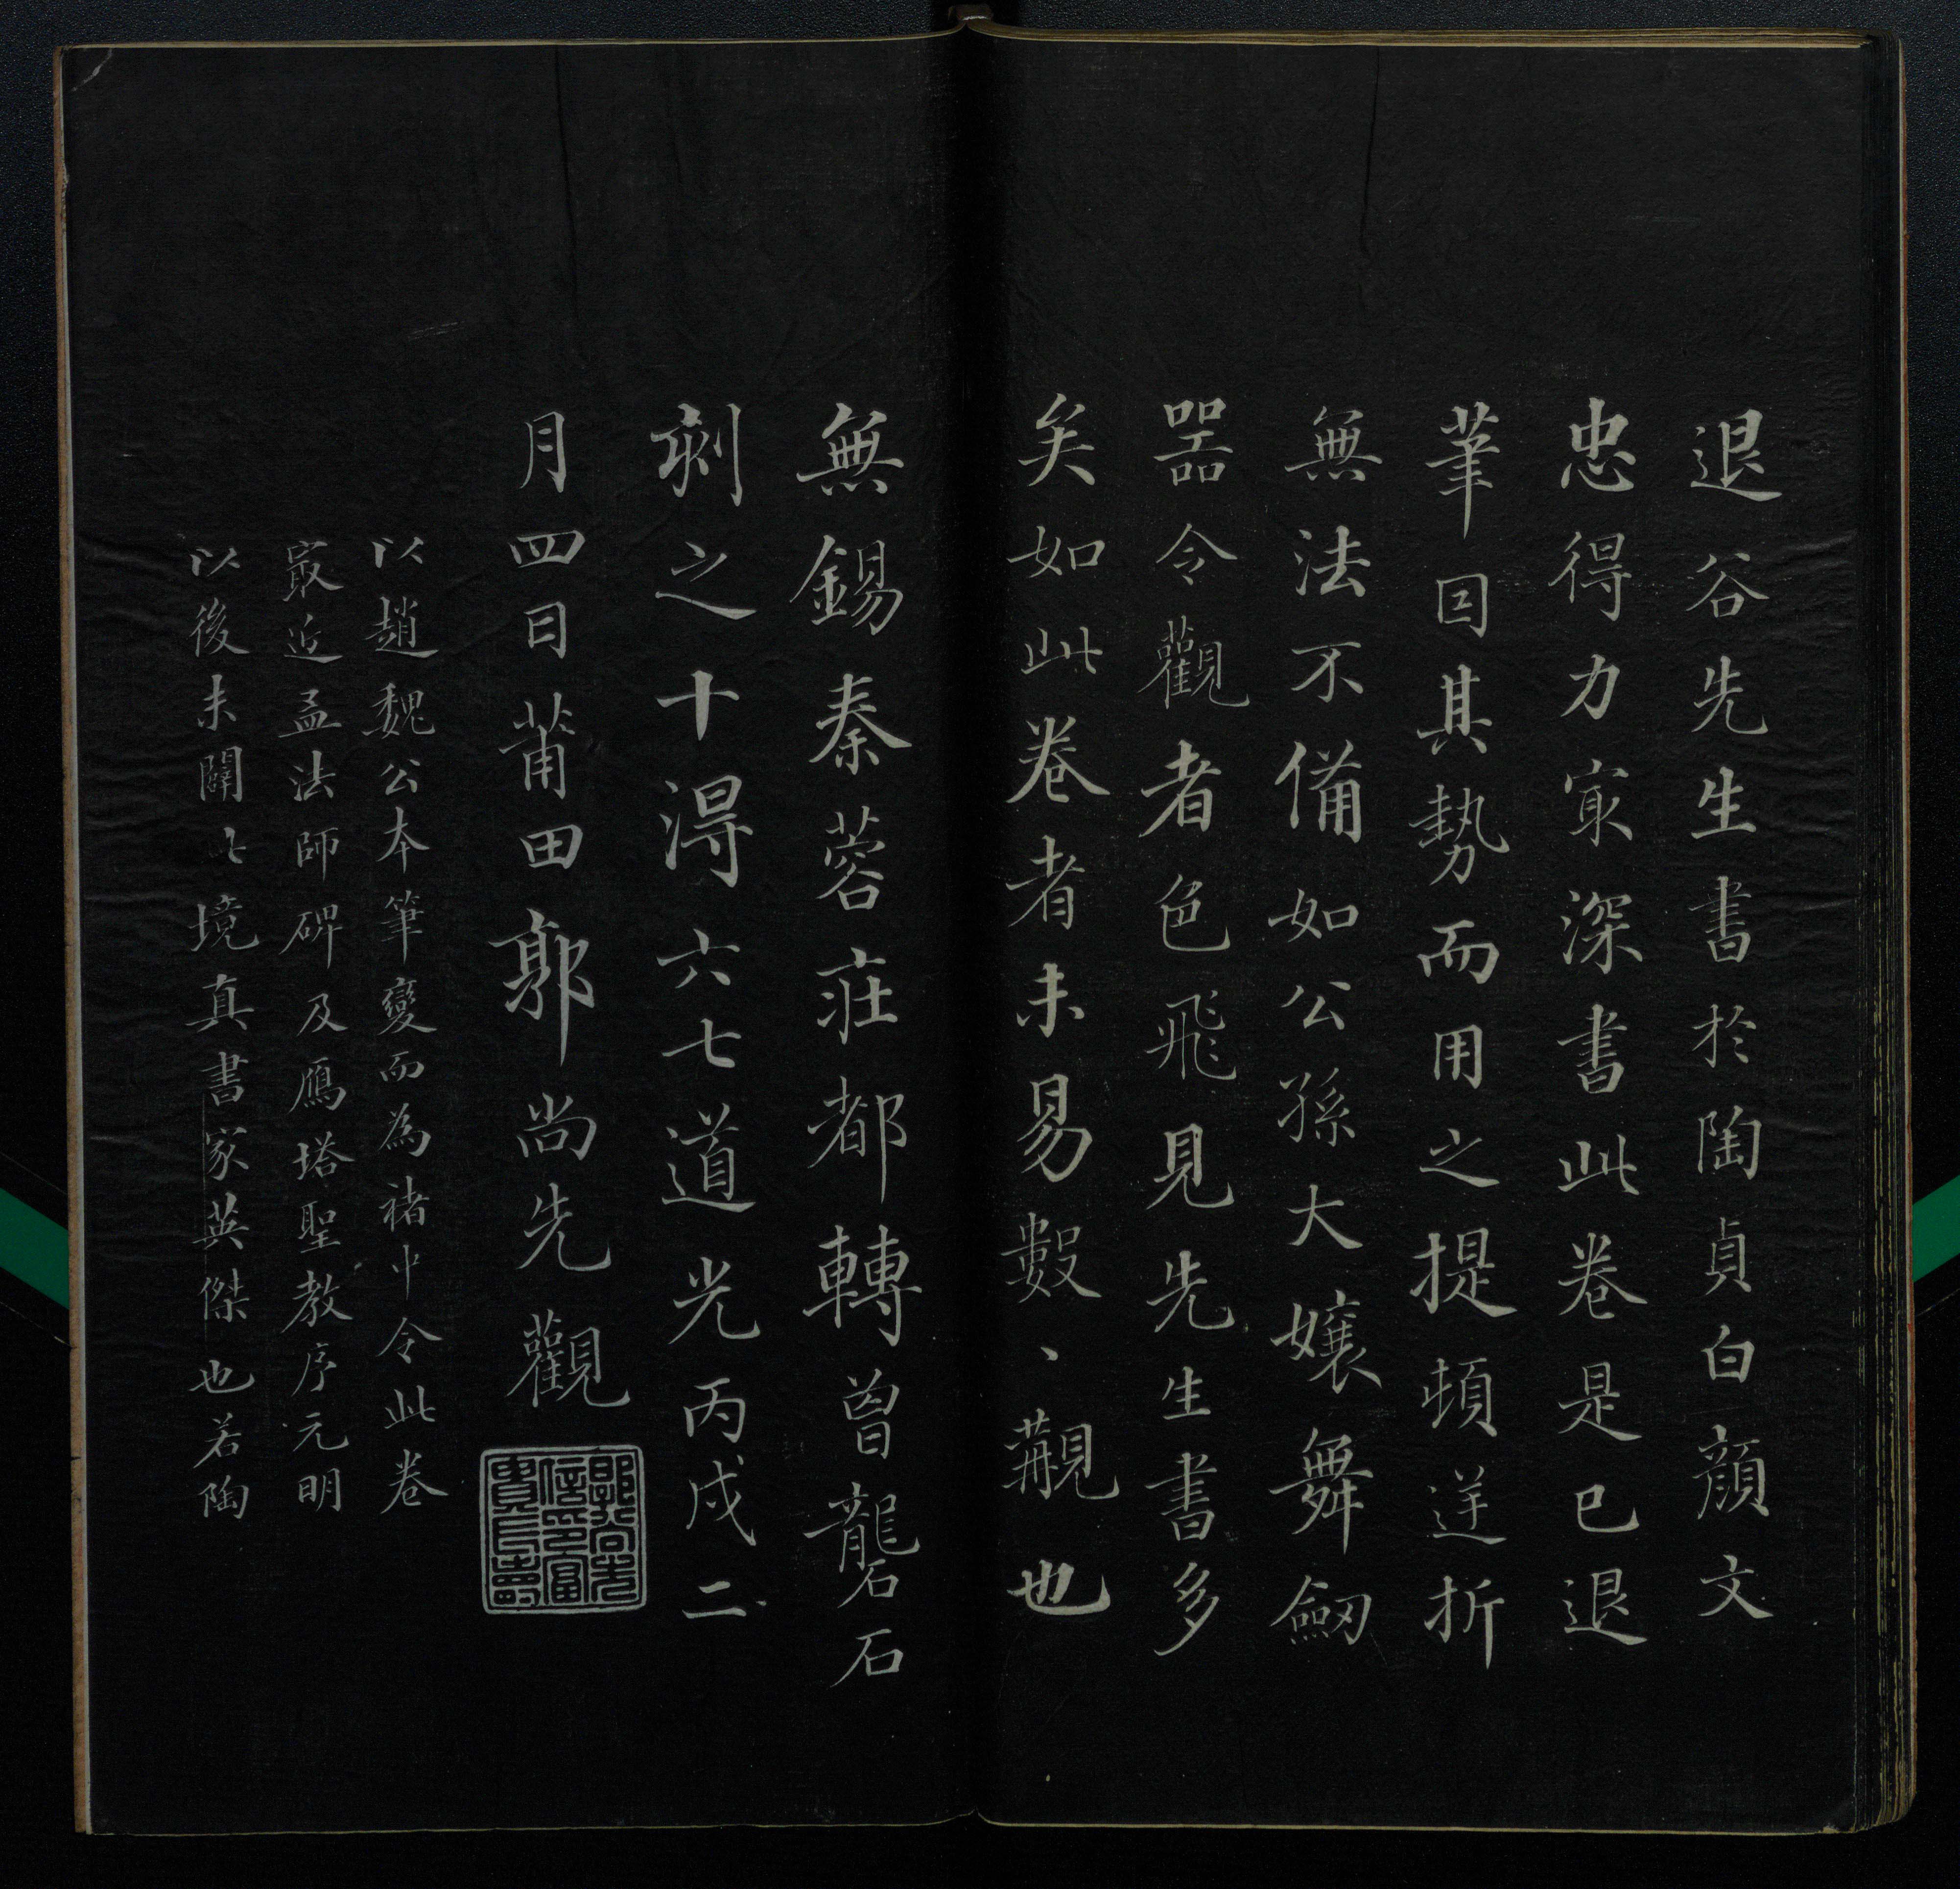 退谷先生書於陶貞白顔文
忠得力冣深書此卷是已退
筆因其勢而用之提頓逆折
無法不備如公孫大孃舞劒
器令觀者色飛見先生書多
矣如此卷者未易數、觏也
無錫秦蓉莊都轉曾礱石
刺之十淂六七道光丙戌二
月四日莆田郭尚先觀
郭尚先信印富貴長壽
以趙魏公本筆變而為褚中令此卷
冣近孟法師碑及鴈塔聖教序元明
以後未闢此境真書家英傑也若陶